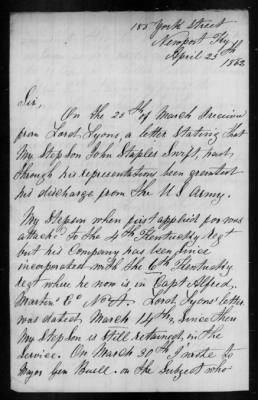 185 York Street
Newport Ky
April 25th
1862
Sir,
On the 25th of March I receiv
from Lord Lyons, a letter stating that
My Stepson John Staples Swift, had,
through his representations been granted
his discharge from the U S Army.
My Stepson when first applied for was
attachd to the 4th Kentucky Regt
but his Company has been since
incorporated with the 6th Kentucky
regt where he now is, in Capt Alfred
Martins Co No 4. Lord Lyons letter
was dated, March 14th, since then
My Stepson is still retained, in the
service. On March 30th I wrote to
Major Genl Buell. on the subject who